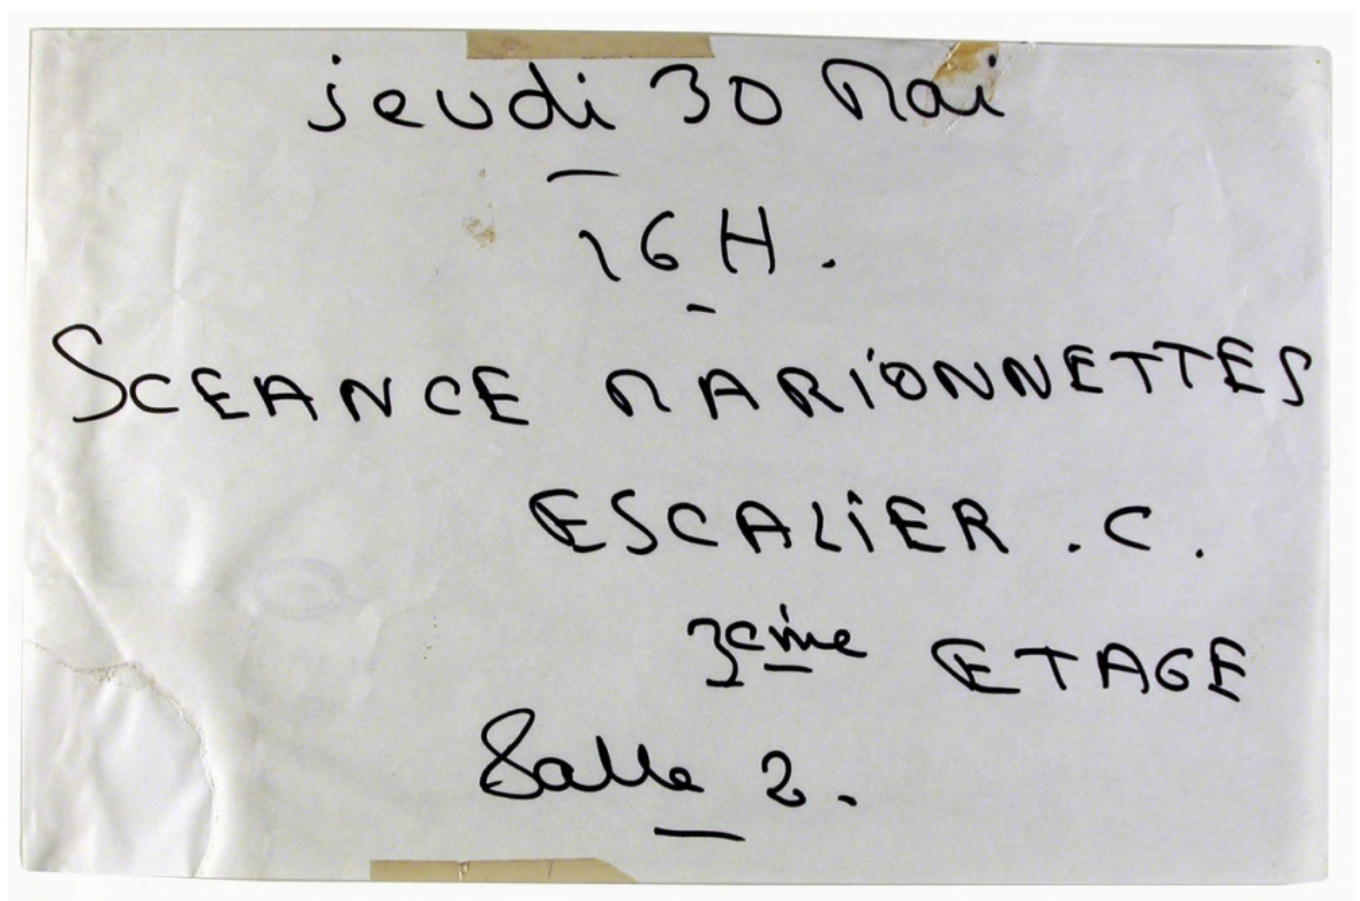 jeudi 30 Mai
16 H.
SCEANCE MARIONNETTES
ESCALIER . C .
3eme ETAGE
Salle 2.